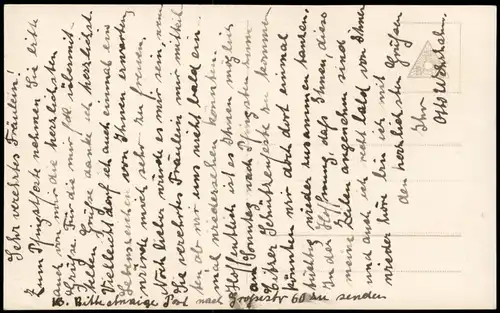 Sehr verehrtes Fräulein!
Zum Pfingstfeste nehmen Sie bitte
auch von mir die herzlichsten
Grüsse. Für die mir übermit-
telten Grüsse danke ich herzlichst.
Vielleicht darf ich auch einmal ein
Lebenszeichen von Ihnen erwarten
würde mich sehr zu freuen.
Noch lieber würde es mir sein, wenn
Sie verehrtes Fräulein mir mitteil-
ten ob wir uns nicht bald ein-
mal wiedersehen könnten.
Hoffentlich ist es Ihnen möglich
am Sonntag nach Pfingsten zum
Schützenfeste zu kommen
könnten wir doch dort einmal
tüchtig wieder zusammen tanzen.
In der Hoffnung, daß Ihnen, diese
meine Zeilen angenehm sind
und auch ich recht bald von Ihnen
wieder höre bin ich mit
den herzlichsten Grüßen
Ihr
Otto
NB. Bitte etwaige Post nach Grossestr 60 zu senden